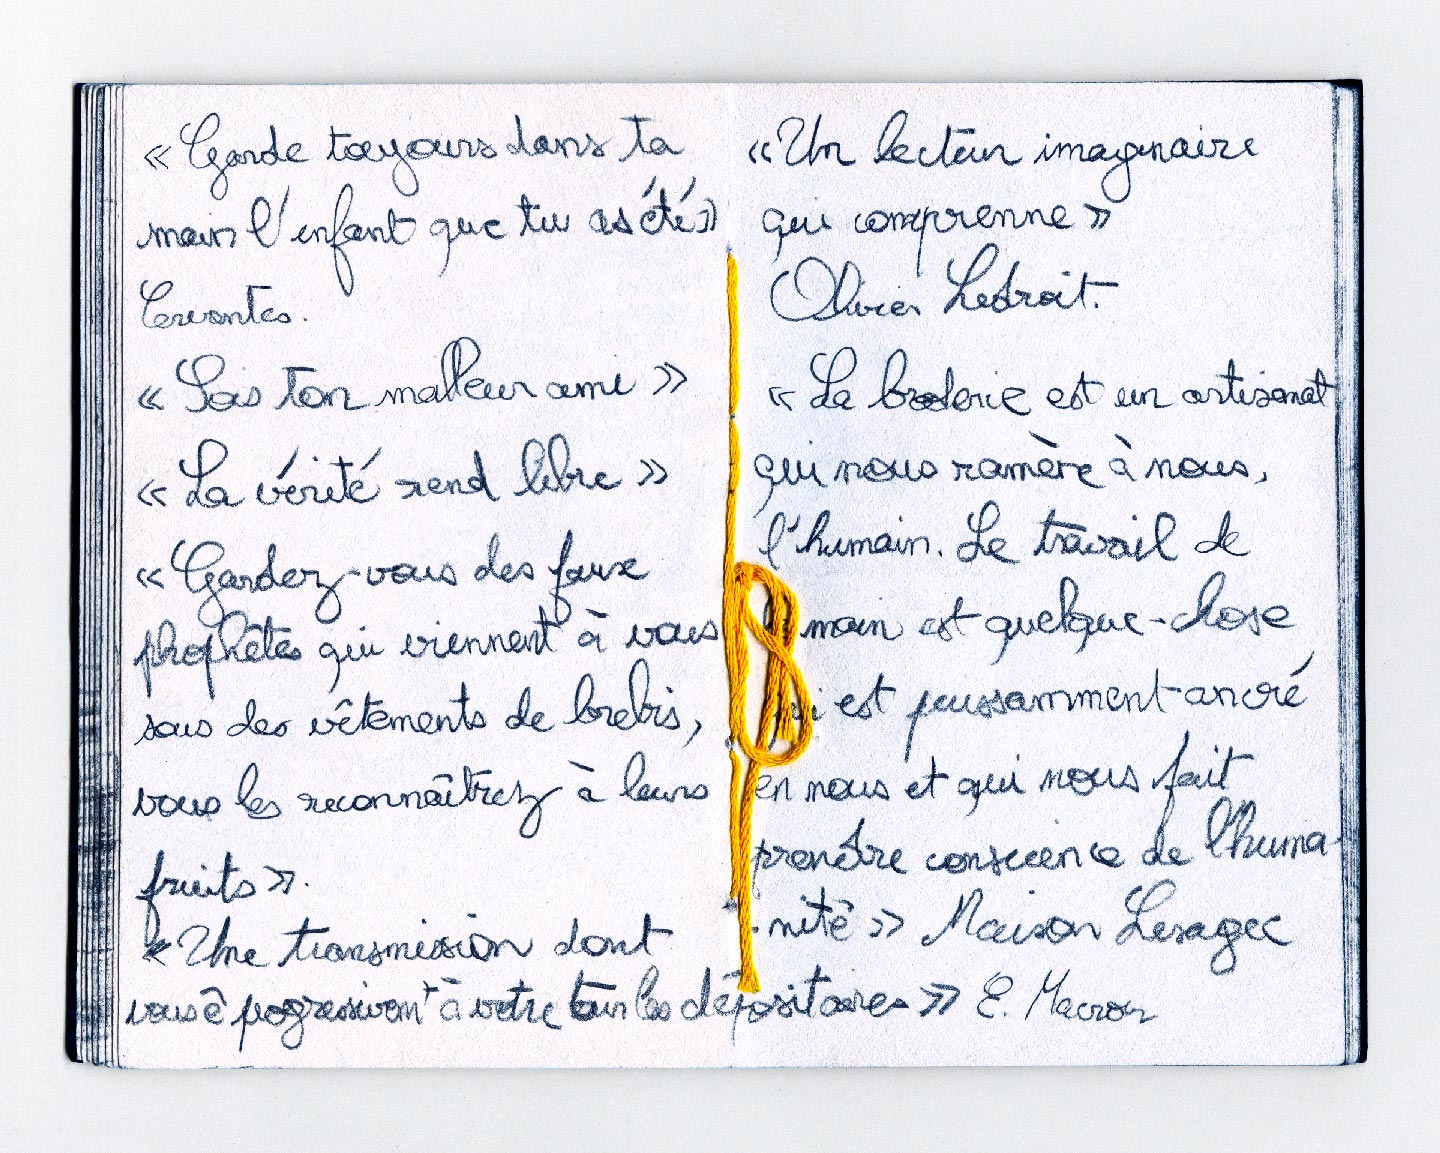 « Garde toujours dans ta
main l'enfant que tu as été »
Cervantes.
« Sois ton meilleur ami »
« La vérité rend libre »
« Gardez-vous des faux
prophètes qui viennent à vous
sous des vêtements de brebis,
vous les reconnaîtrez à leurs
fruits ».
« Une transmission dont
vous ê progressivemt à votre tour les dépositaires » E. Macron
« Un lecteur imaginaire
qui comprenne »
Olivier Ledroit.
« La broderie est un artisanat
qui nous ramène à nous,
l'humain. Le travail de
main est quelque-chose
est puissamment ancré
en nous et qui nous fait
prendre conscience de l'huma-
-nité » Maison Lesage